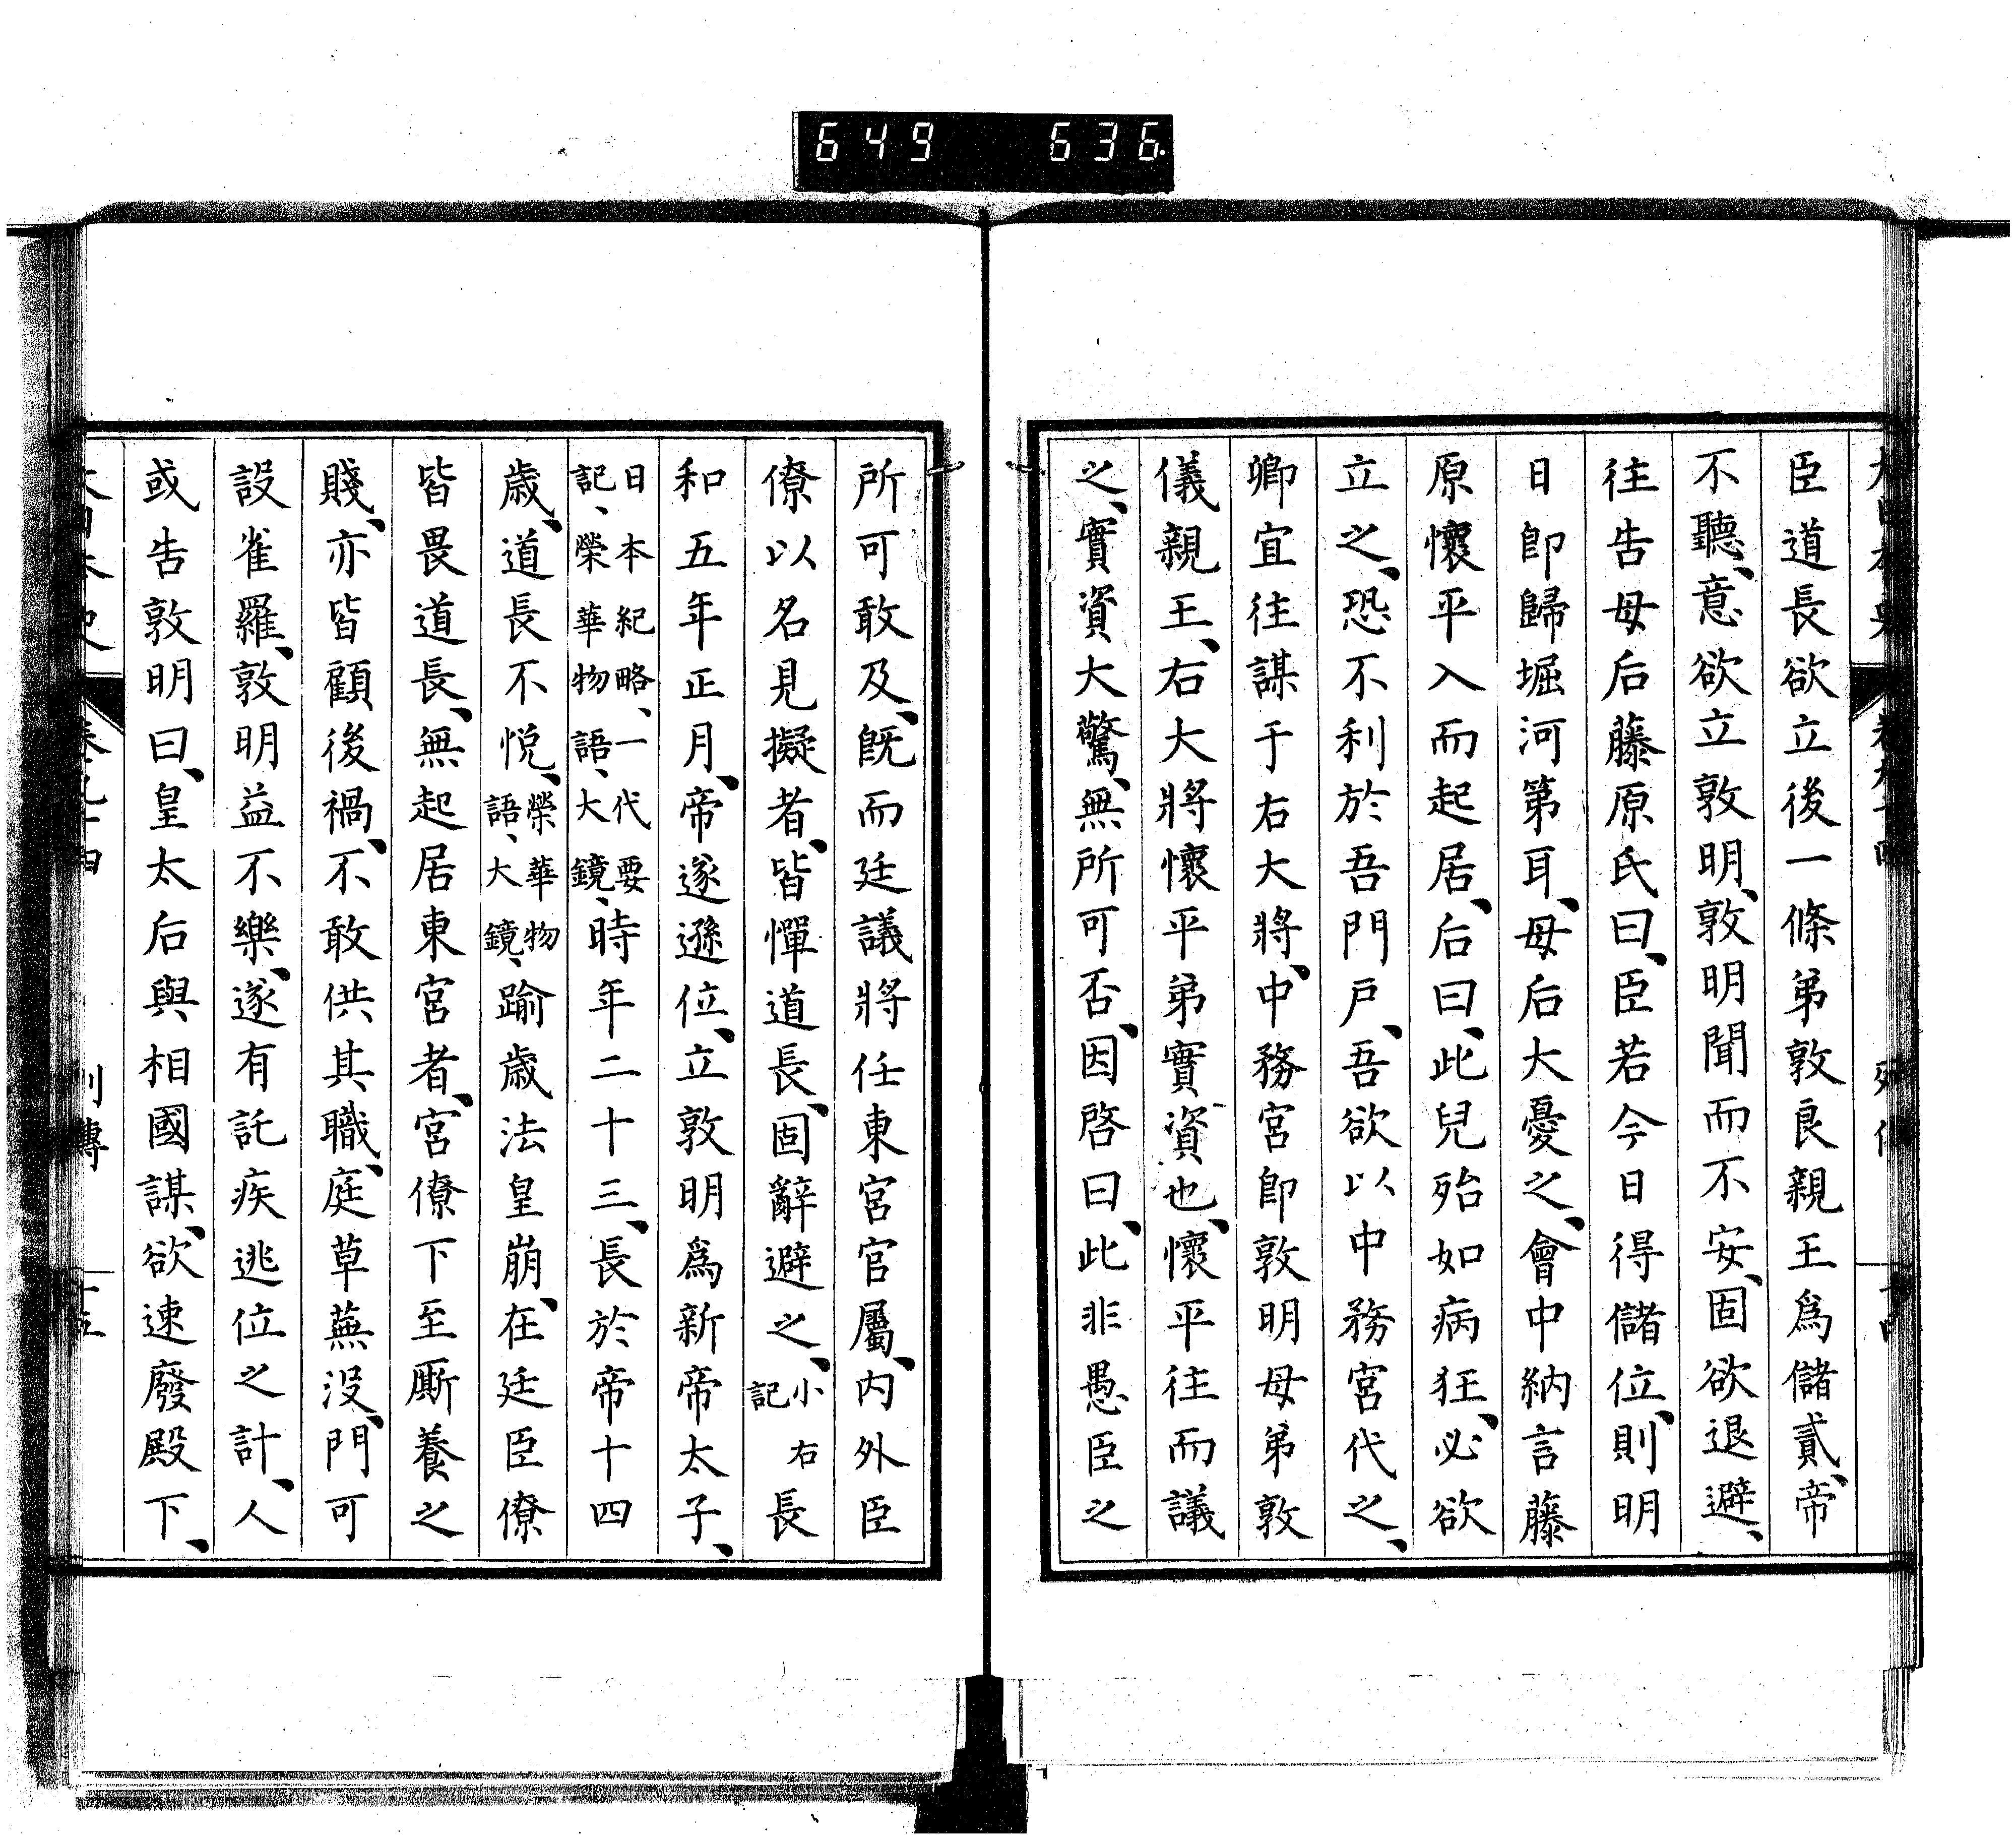 649 636
臣道長欲立後一條弟敦良親王爲儲貳、帝
不聽、意欲立敦明、敦明聞而不安、固欲退避、
往告母后藤原氏曰、臣若今日得儲位、則明
日卽歸堀河第耳、母后大憂之、會中納言藤
原懷平入而起居、后曰、此兒殆如病狂、必欲
立之、恐不利於吾門戸、吾欲以中務宮代之、
卿宜往謀于右大將、中務宮卽敦明母弟敦
儀親王、右大將懷平弟實資也、懷平往而議
之、實資大驚、無所可否、因啓曰、此非愚臣之
所可敢及、既而廷議將任東宮官屬、內外臣
僚以名見擬者、皆憚道長、固辭避之、小右記長
和五年正月、帝遂遜位、立敦明爲新帝太子、
日本紀略、一代要記、榮華物語、大鏡、時年二十三、長於帝十四
歲、道長不悅、榮華物語、大鏡、踰歲法皇崩、在廷臣僚
皆畏道長、無起居東宮者、宮僚下至厮養之
賤、亦皆顧後禍、不敢供其職、庭草蕪沒、門可
設雀羅、敦明益不樂、遂有託疾逃位之計、人
或告敦明曰、皇太后與相國謀、欲速廢殿下、